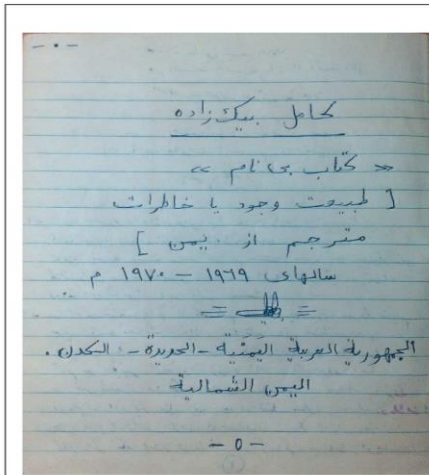 - ٠ -
كامل بيک زاده
« كتاب بی نام »
[ طبيعت وجود يا خاطرات
مترجم از يمن ]
سالهای ١٩٦٩ - ١٩٧٠ م
الجمهورية العربية اليَمَنية - الحديدة - الكدن .
اليمن الشمالية
- ٥ -